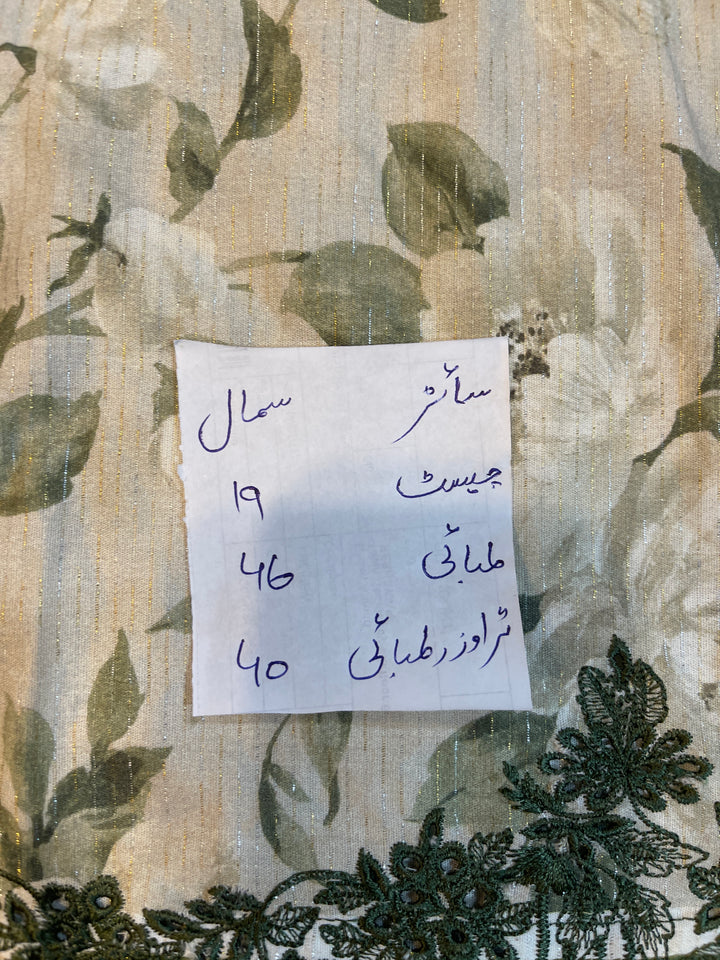 سائز سمال
چیسٹ 19
لمبائی 46
ٹراوزر لمبائی 40